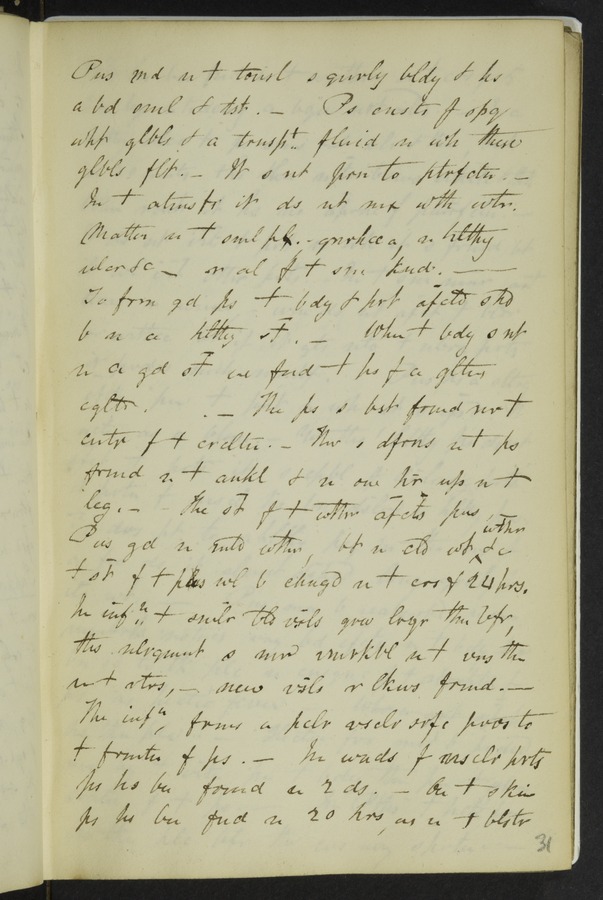 Pus md n t tonsl s gnrly bldy & hs
a bd sml & tst. — Ps cnsts f opq
wht glbls & a trnspt fluid n wh these
glbls flt. — It s nt prn to ptrfctn. —
In t atmsfr it ds nt mx wth wtr.
Matter n t sml px. gnrhcea, n hlthy
ulcrs &c — r al f t sm knd. —
To frm gd ps t bdy & prt afctd shd
b n a hlthy st. — When t bdy s nt
n a gd st we fnd t ps f a gltns
. — The ps s bst found nr t
cntr f t crcltn. — Thr s dfrns nt ps
frmd n t ankl & n one hr up n t
leg. — The st f t wthr afcts pus,
Pus gd n mld wthr, bt n cld wt wthr &c
t st f t pus wl b changd n t crs f 24 hrs.
In infn t smlr bld vsls grw lrgr thn bfr,
ths nlrgmnt s mr rmrkbl n t vns thn
n t rtrs, — new vsls r lkws frmd. —
The infn, frms a pclr vsclr srfc prvs to
t frmtn f ps. — In wnds f msclr prts
ps hs bn found n 2 ds. — On t skin
ps hs bn fnd n 20 hrs, as n t blstr
31